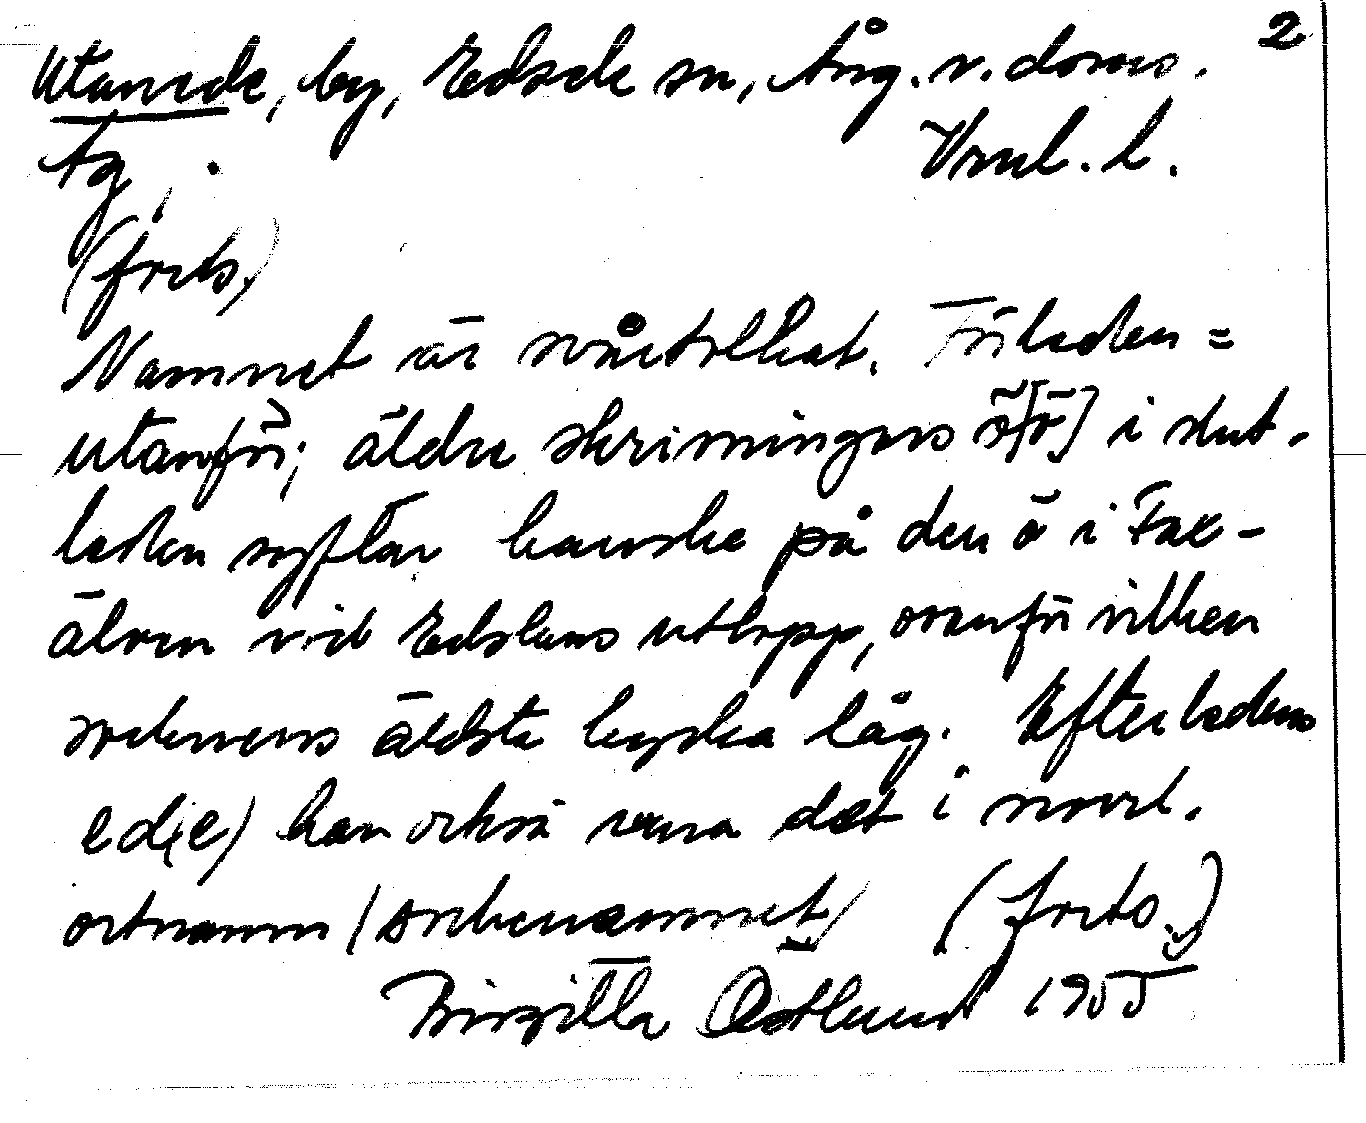 2
Utanede, by, Edsele sn, Ång. v. doms.
Vnul. l.
Tg.
(forts.)
Namnet är svårtolkat. Förleden =
utanför; äldre skrivningars ö[ö] i slut-
leden syftar kanske på den ö i Fax-
älven vid Edslans utlopp, ovanför vilken
socknens äldsta kyrka låg. Efterledens
ed(e) kan också vara det i svens.
ortnamn /sockennamnet/ (forts.)
Birgitta Östlund 1955